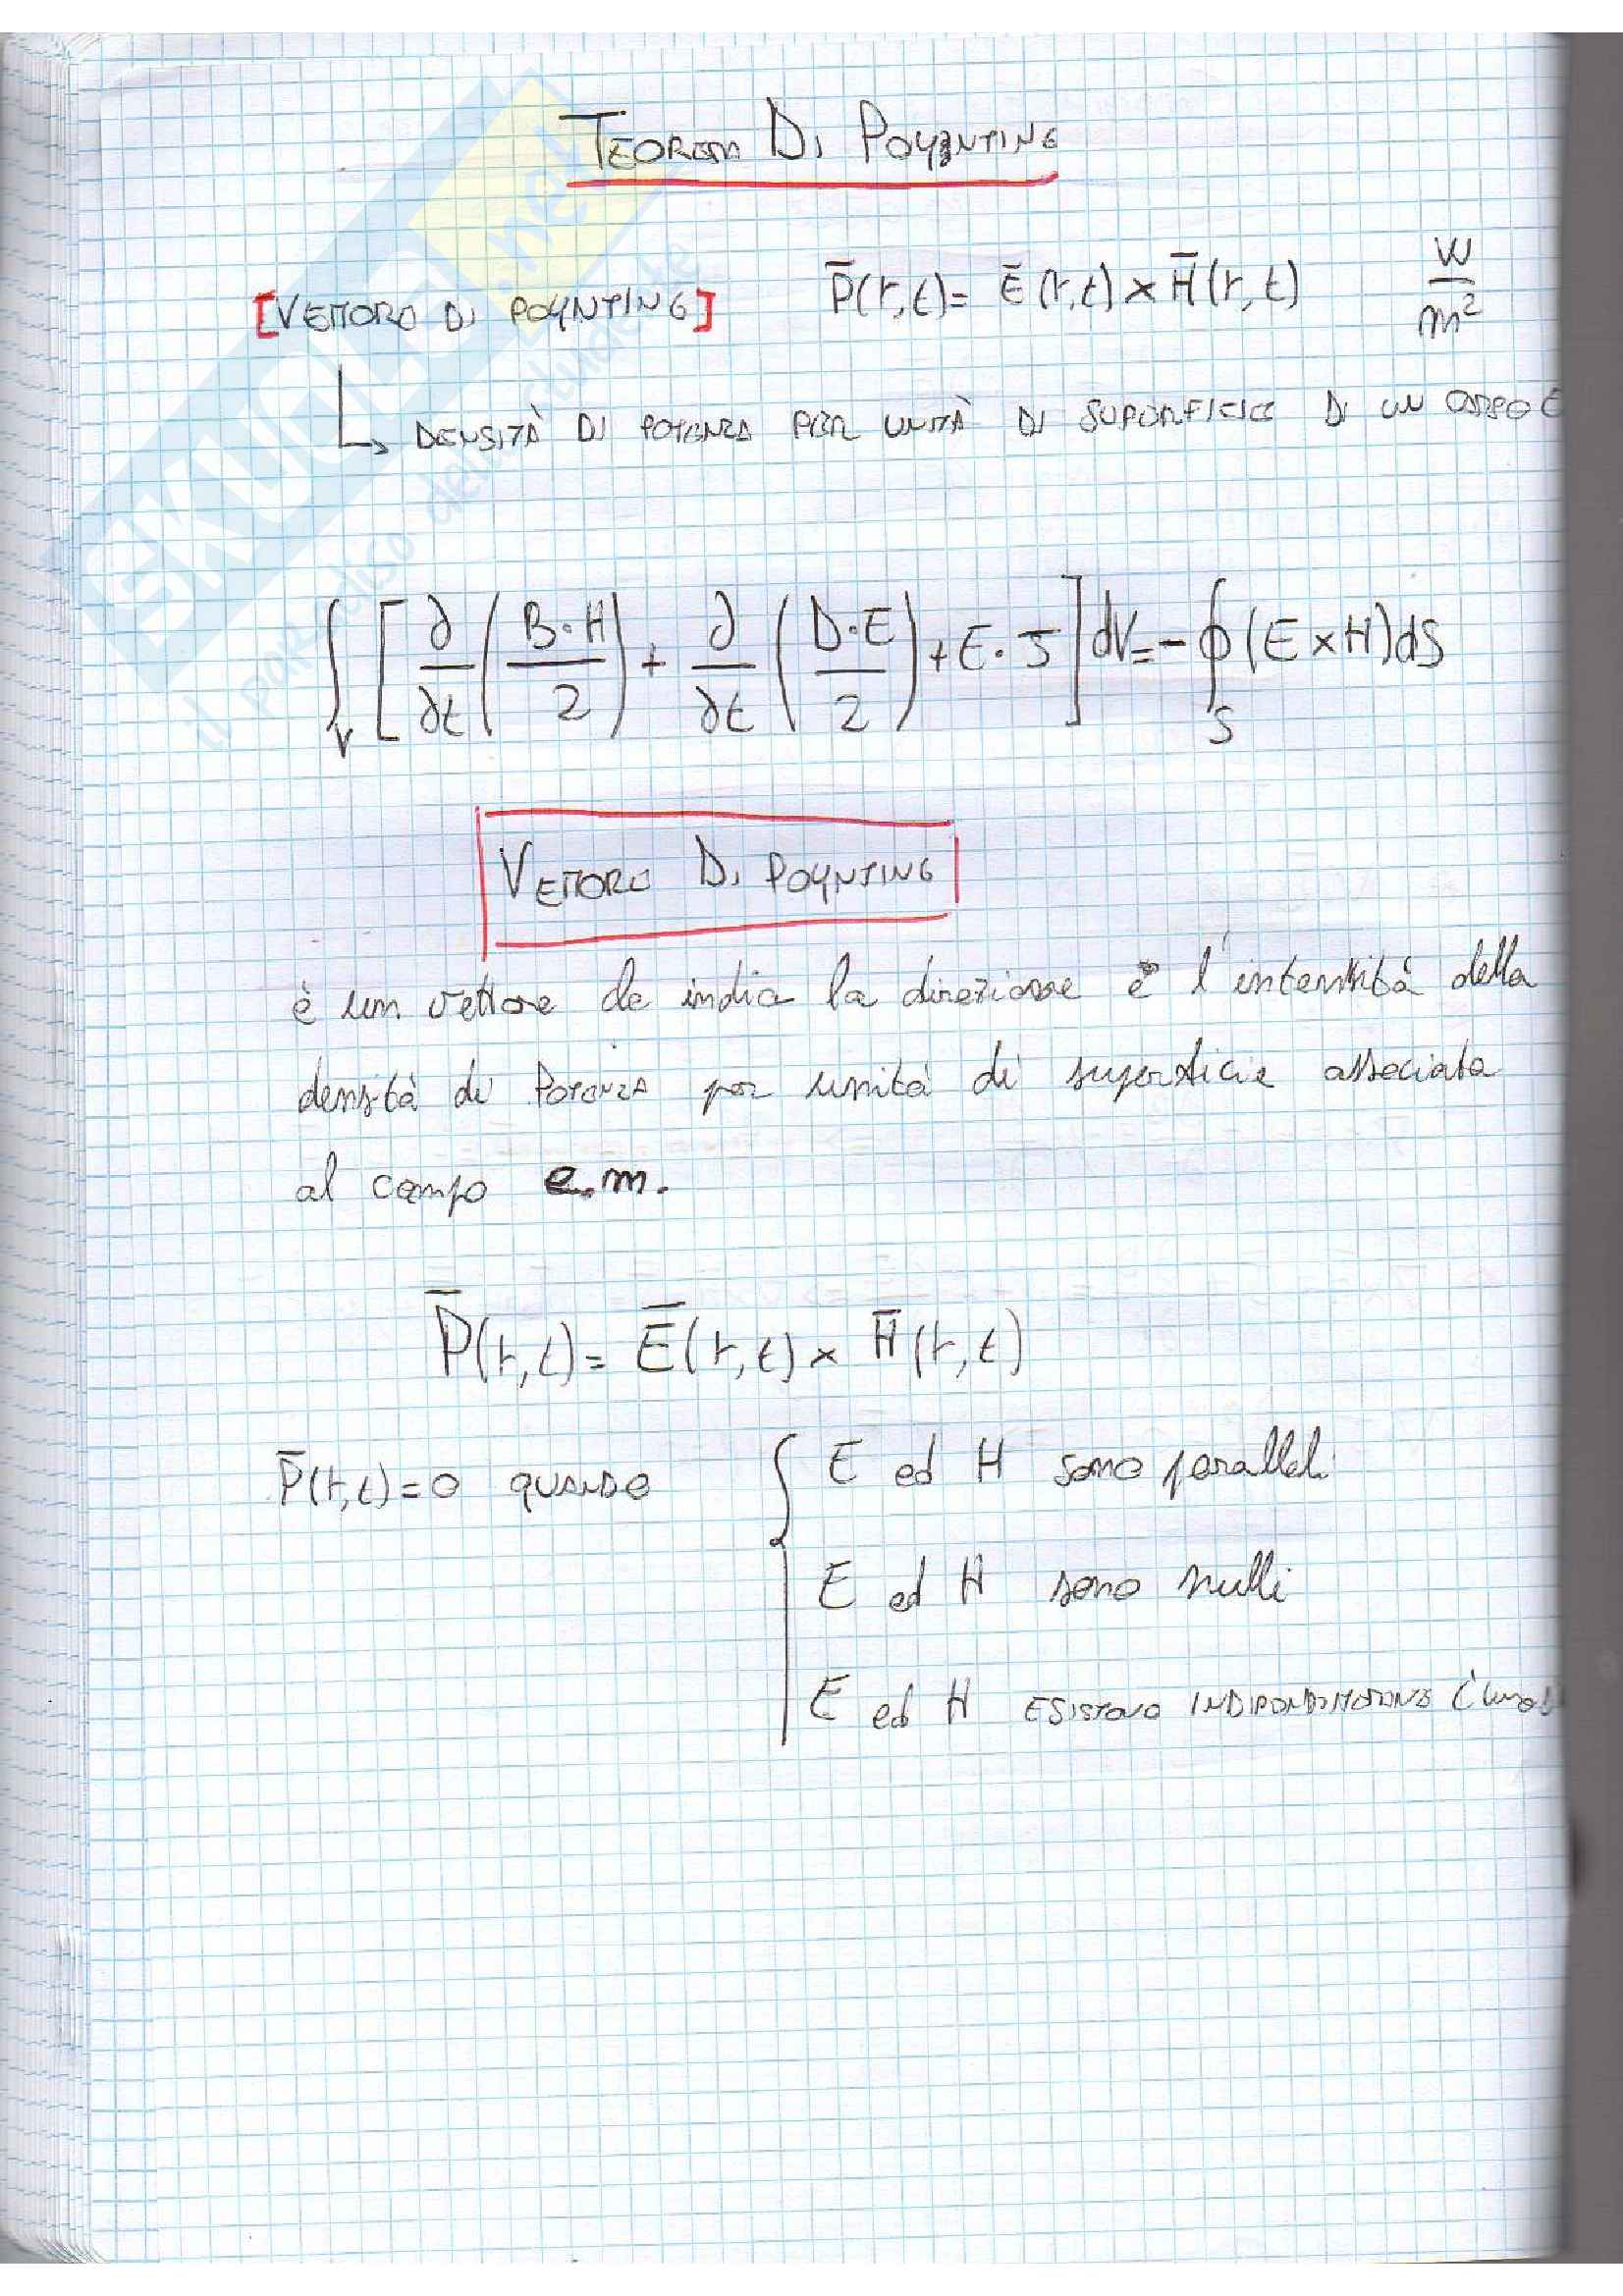 TEOREMA DI POYNTING
[VETTORE DI POYNTING] P̄(r,t) = Ē(r,t) × H̄(r,t) W/m²
↳ DENSITÀ DI POTENZA PER UNITÀ DI SUPERFICIE DI UN CAMPO
∫_V [∂/∂t (B·H/2) + ∂/∂t (D·E/2) + E·J] dV = - ∮_S (E×H) dS
VETTORE DI POYNTING
è un vettore che indica la direzione e l'intensità della
densità di POTENZA per unità di superficie associata
al campo e.m.
P̄(r,t) = Ē(r,t) × H̄(r,t)
P̄(r,t) = 0 QUANDO { E ed H sono paralleli
E ed H sono nulli
E ed H ESISTONO
SKUOLA.net
il paradiso dello studente